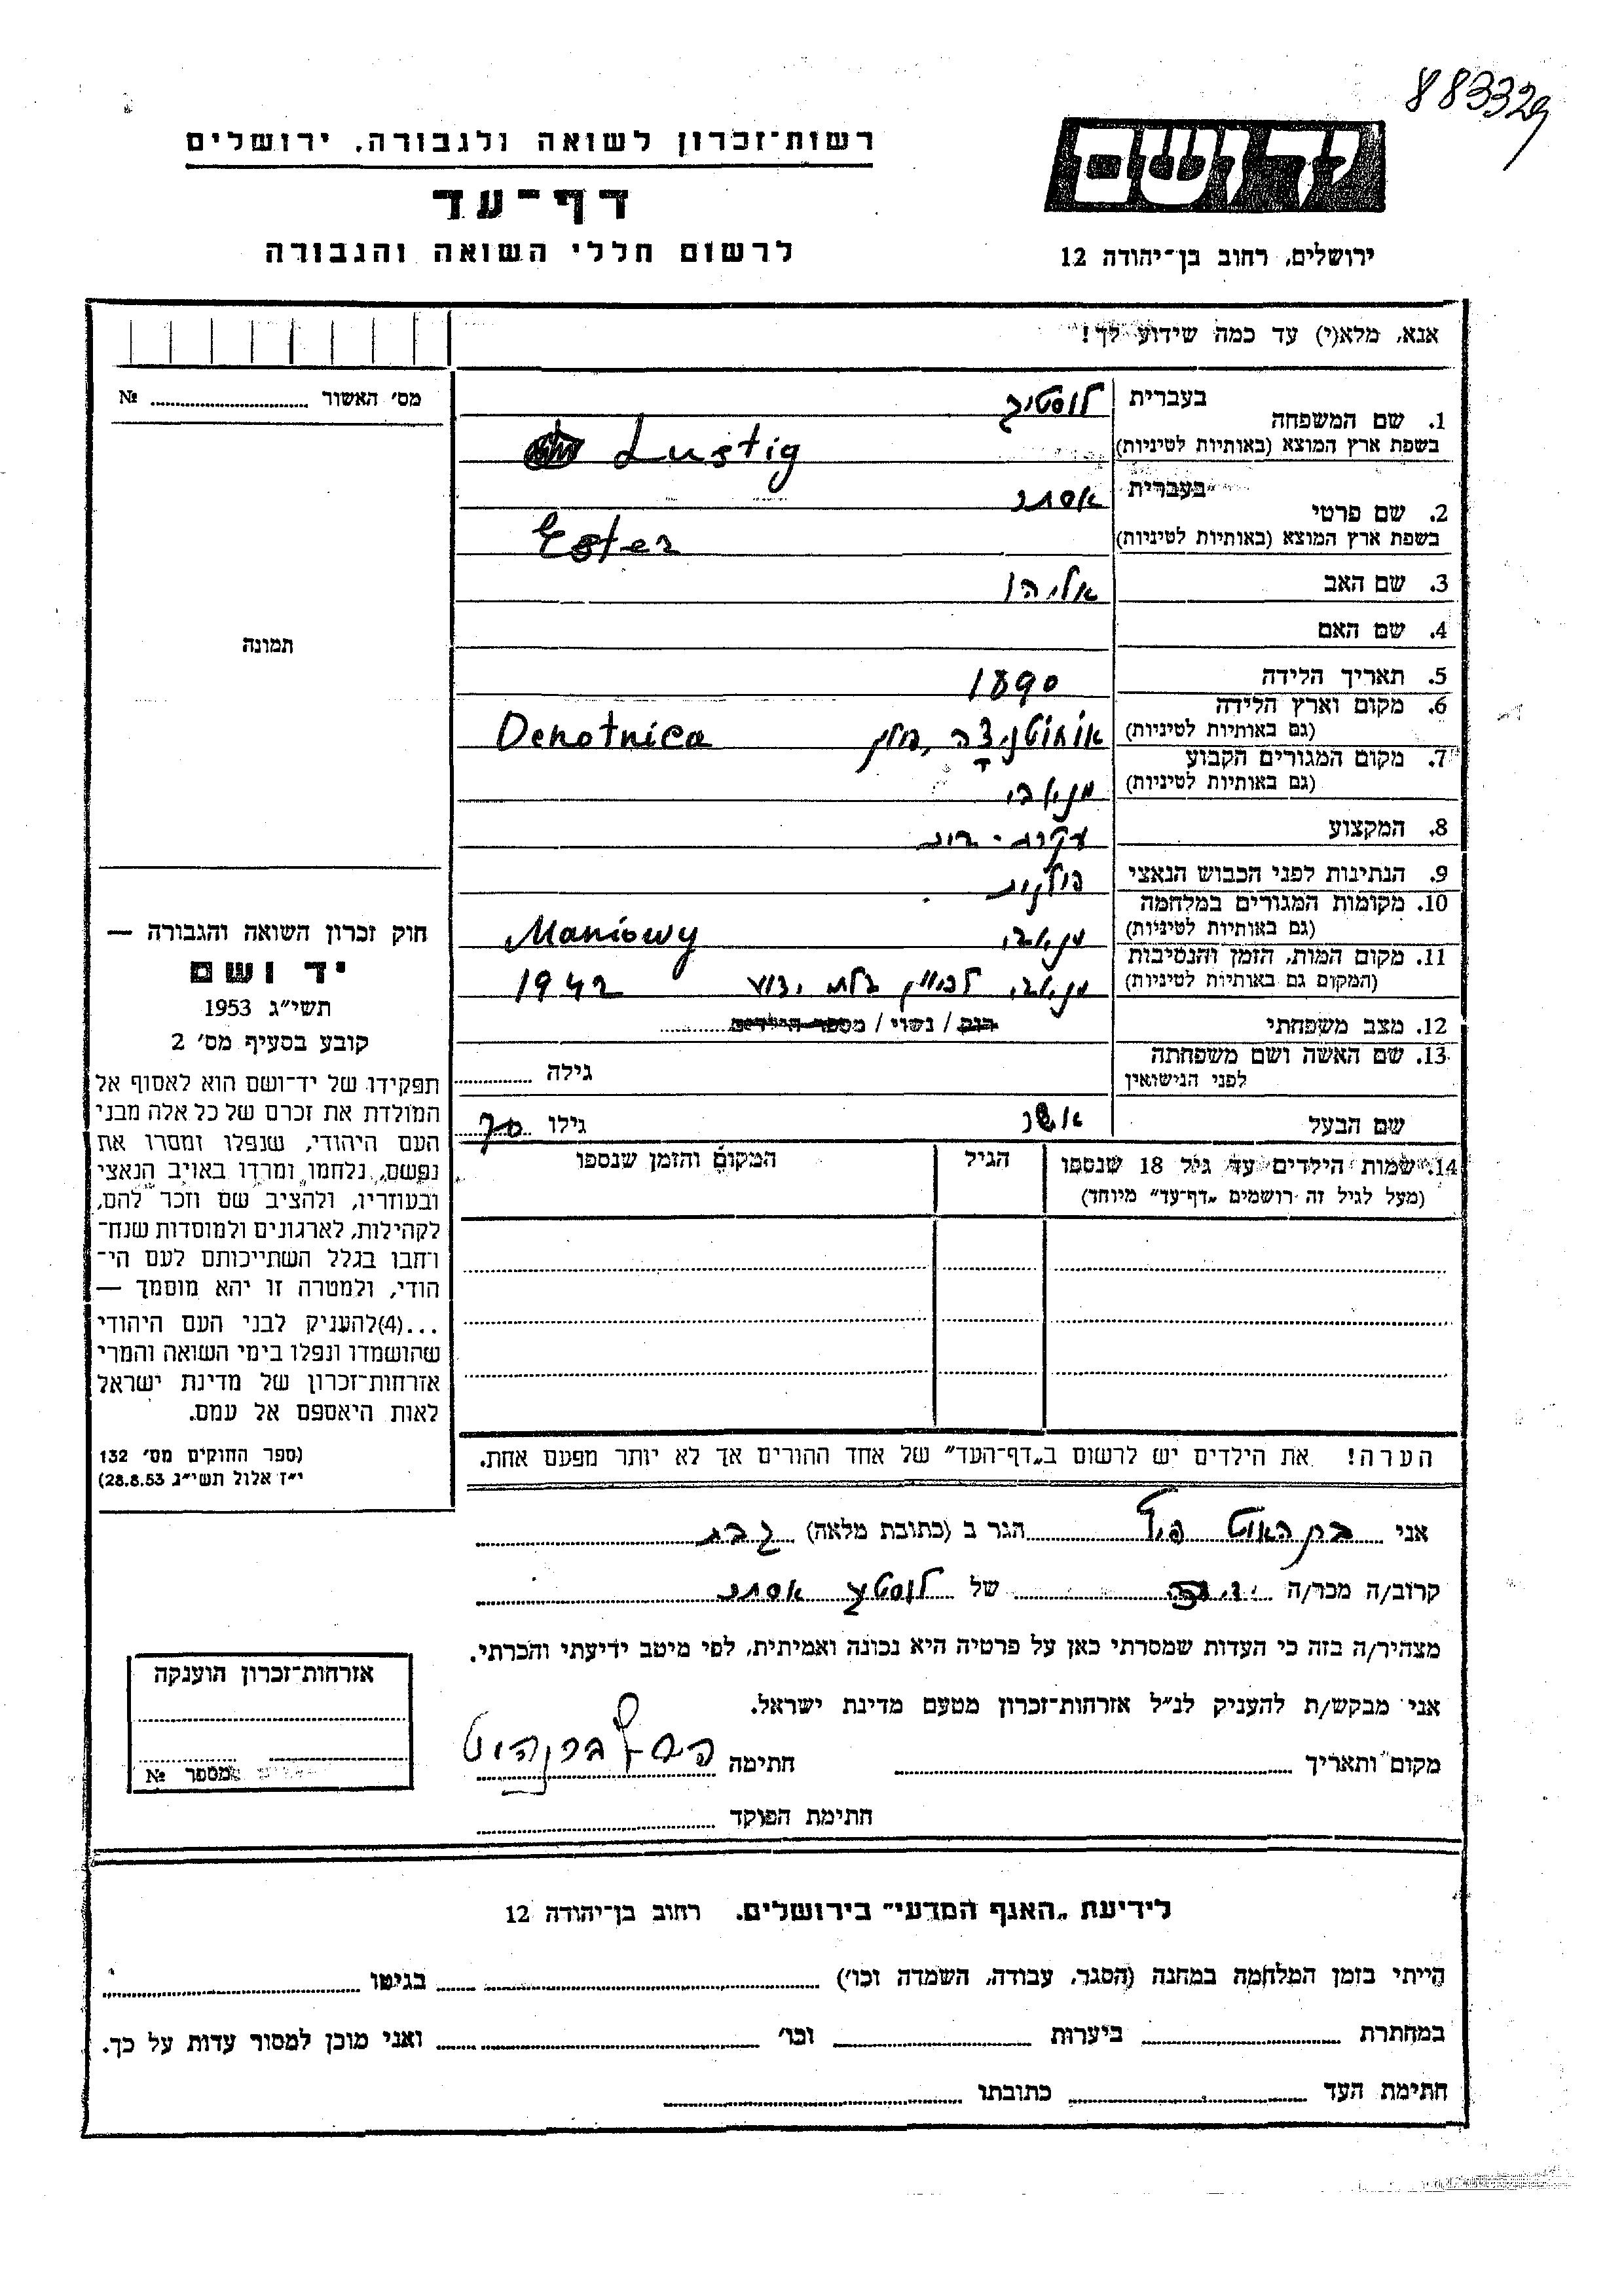 883329
רשות־זכרון לשואה ולגבורה, ירושלים
דף־עד
לרשום חללי השואה והגבורה
יד ושם
ירושלים, רחוב בן־יהודה 12
אנא, מלא(י) עד כמה שידוע לך!
מס׳ האשור № 
1. שם המשפחה בעברית לוסטיג
בשפת ארץ המוצא (באותיות לטיניות) Lustig
2. שם פרטי בעברית אסתר
בשפת ארץ המוצא (באותיות לטיניות) Ester
3. שם האב אליהו
4. שם האם
תמונה
5. תאריך הלידה 1890
6. מקום וארץ הלידה
(גם באותיות לטיניות) אוחוטניצה, פולין Ochotnica
7. מקום המגורים הקבוע
(גם באותיות לטיניות) מניאבי
8. המקצוע עקרת־בית
9. הנתינות לפני הכבוש הנאצי פולנית
10. מקומות המגורים במלחמה
(גם באותיות לטיניות) מניאבי Maniowy
11. מקום המות, הזמן והנסיבות
(המקום גם באותיות לטיניות) מניאבי 1942
12. מצב משפחתי רווק / נשוי / מספר הילדים
13. שם האשה ושם משפחתה
לפני הנישואין גילה
שם הבעל אשר גילו 70
14. שמות הילדים עד גיל 18 שנספו הגיל המקום והזמן שנספו
(מעל לגיל זה רושמים „דף־עד״ מיוחד)
חוק זכרון השואה והגבורה —
יד ושם
תשי״ג 1953
קובע בסעיף מס׳ 2
תפקידו של יד־ושם הוא לאסוף אל
המולדת את זכרם של כל אלה מבני
העם היהודי, שנפלו ומסרו את
נפשם, נלחמו ומרדו באויב הנאצי
ובעוזריו, ולהציב שם וזכר להם,
לקהילות, לארגונים ולמוסדות שנח־
רחבו בגלל השתייכותם לעם הי־
הודי, ולמטרה זו יהא מוסמך —
...(4)להעניק לבני העם היהודי
שהושמדו ונפלו בימי השואה והמרי
אזרחות־זכרון של מדינת ישראל
לאות היאספם אל עמם.
(ספר החוקים מס׳ 132
י״ז אלול תשי״ג 28.8.53)
הערה! את הילדים יש לרשום ב„דף־העד״ של אחד ההורים אך לא יותר מפעם אחת.
אני הגר ב (כתובת מלאה) יבנה
קרוב/ה מכר/ה של לוסטיג אסתר
מצהיר/ה בזה כי העדות שמסרתי כאן על פרטיה היא נכונה ואמיתית, לפי מיטב ידיעתי והכרתי.
אני מבקש/ת להעניק לנ״ל אזרחות־זכרון מטעם מדינת ישראל.
מקום ותאריך חתימה
חתימת הפוקד
אזרחות־זכרון הוענקה
מספר №
לידיעת „האגף המדעי״ בירושלים, רחוב בן־יהודה 12
הייתי בזמן המלחמה במחנה (הסגר, עבודה, השמדה וכו׳) בגיטו
במחתרת ביערות וכו׳ ואני מוכן למסור עדות על כך.
חתימת העד כתובתו